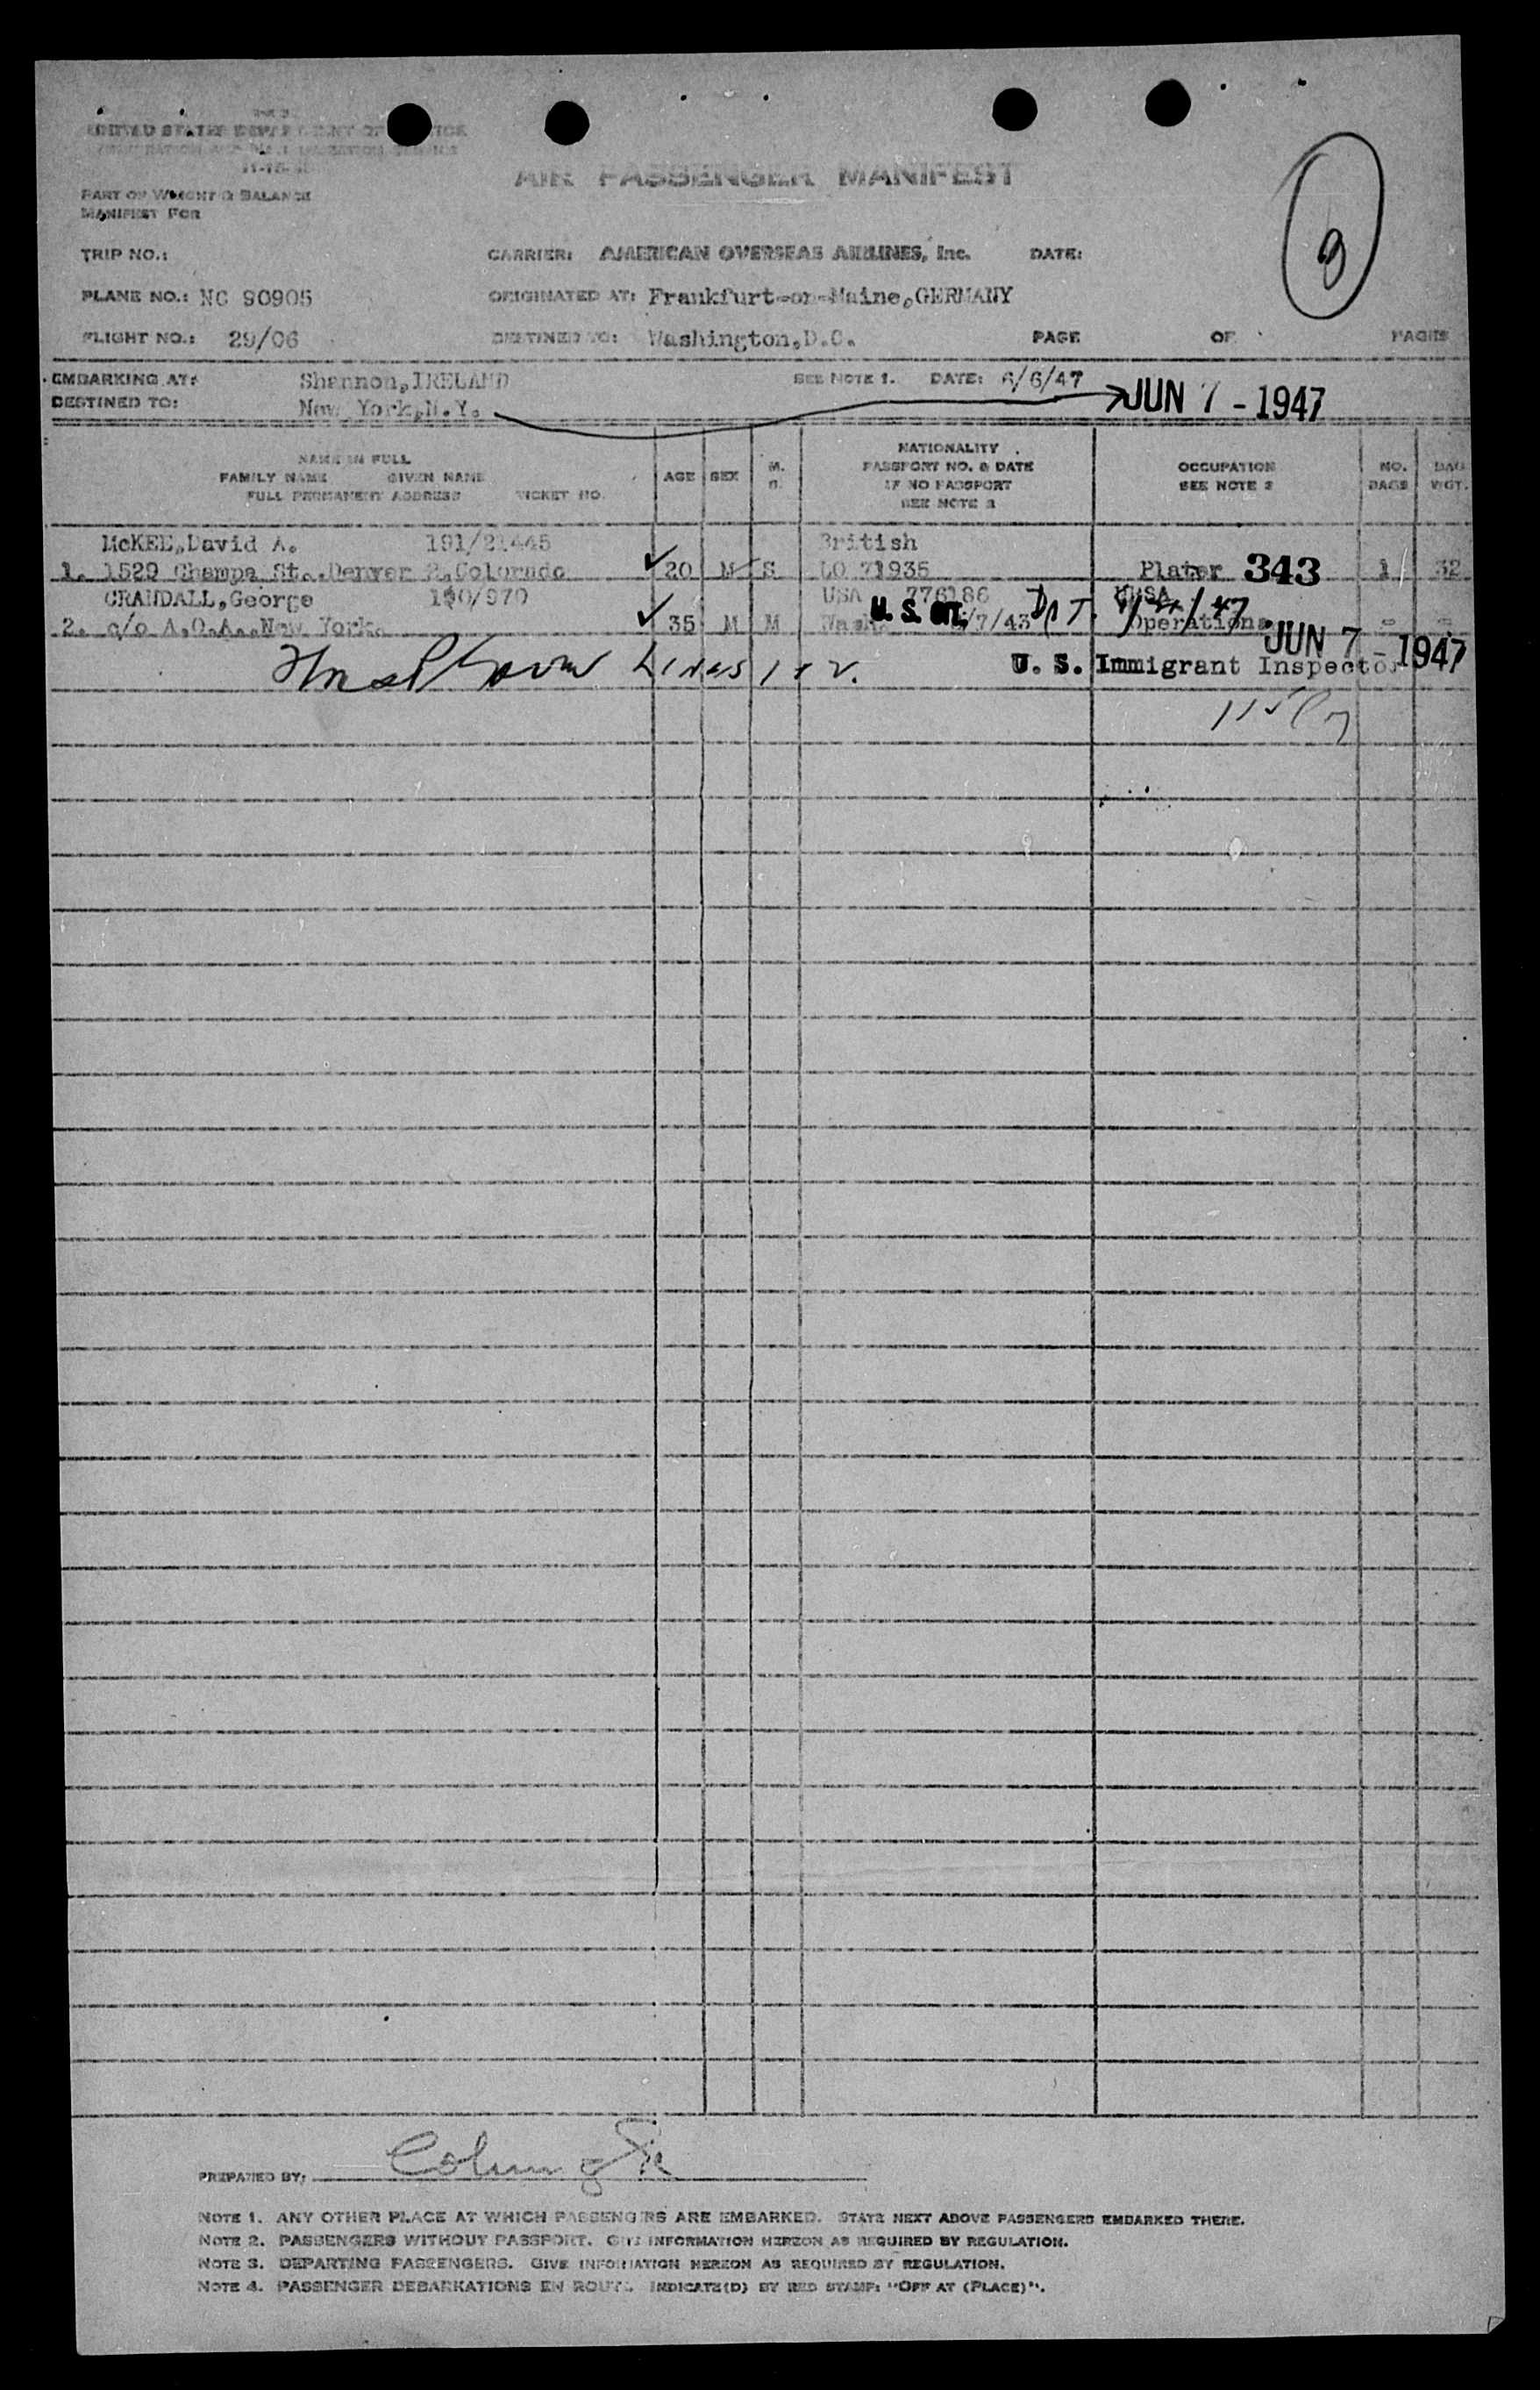 UNITED STATES DEPARTMENT OF JUSTICE
IMMIGRATION AND NATURALIZATION SERVICE
AIR PASSENGER MANIFEST
PART OF WEIGHT & BALANCE
MANIFEST FOR
3
TRIP NO.: CARRIER: AMERICAN OVERSEAS AIRLINES, Inc. DATE:
PLANE NO.: NC 90905 ORIGINATED AT: Frankfurt-on-Maine,GERMANY
FLIGHT NO.: 29/06 DESTINED TO: Washington,D.C. PAGE OF PAGES
EMBARKING AT: Shannon,IRELAND SEE NOTE 1. DATE: 6/6/47
DESTINED TO: New York,N.Y. JUN 7 - 1947
NAME IN FULL
FAMILY NAME GIVEN NAME
FULL PERMANENT ADDRESS TICKET NO.
AGE SEX M. S.
NATIONALITY
PASSPORT NO. & DATE
IF NO PASSPORT
SEE NOTE 2
OCCUPATION
SEE NOTE 3
NO.
BAGS
BAG
WGT.
McKEE,David A. 191/21445 British
1. 1529 Champa St.,Denver 2,Colorado 20 M S LO 71935 Plater 343 1 32
CRANDALL,George 190/970 USA 776186
2. c/o A.O.A.,New York. 35 M M Wash. U. S. CIT. /7/43 Operations
JUN 7 - 1947
Lines 1 + 2.
U. S. Immigrant Inspector
PREPARED BY:
NOTE 1. ANY OTHER PLACE AT WHICH PASSENGERS ARE EMBARKED. STATE NEXT ABOVE PASSENGERS EMBARKED THERE.
NOTE 2. PASSENGERS WITHOUT PASSPORT. GIVE INFORMATION HEREON AS REQUIRED BY REGULATION.
NOTE 3. DEPARTING PASSENGERS. GIVE INFORMATION HEREON AS REQUIRED BY REGULATION.
NOTE 4. PASSENGER DEBARKATIONS EN ROUTE. INDICATE(D) BY RED STAMP: "OFF AT (PLACE)".